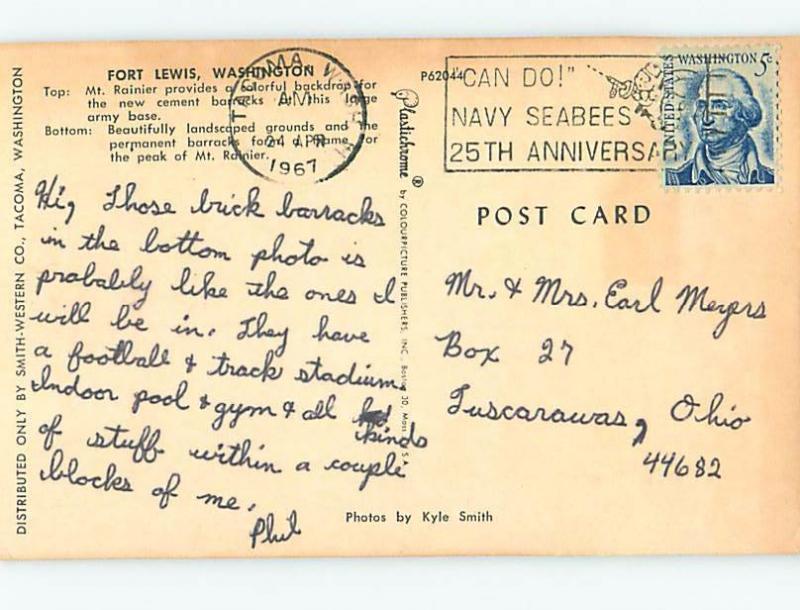 FORT LEWIS, WASHINGTON
Top: Mt. Rainier provides a colorful backdrop for
the new cement barracks at this large
army base.
Bottom: Beautifully landscaped grounds and the
permanent barracks form a frame for
the peak of Mt. Rainier.
TACOMA, WASH
AM
24 APR
1967
P62044
"CAN DO!"
NAVY SEABEES
25TH ANNIVERSARY
UNITED STATES
WASHINGTON 5c
DISTRIBUTED ONLY BY SMITH-WESTERN CO., TACOMA, WASHINGTON
Plastichrome ® by COLOURPICTURE PUBLISHERS, INC., Boston 30, Mass.
POST CARD
Hi, Those brick barracks
in the bottom photo is
probably like the ones I
will be in. They have
a football & track stadium,
Indoor pool & gym & all
kinds
of stuff within a couple
blocks of me.
Phil
Mr. & Mrs. Earl Meyers
Box 27
Tuscarawas, Ohio
44682
Photos by Kyle Smith